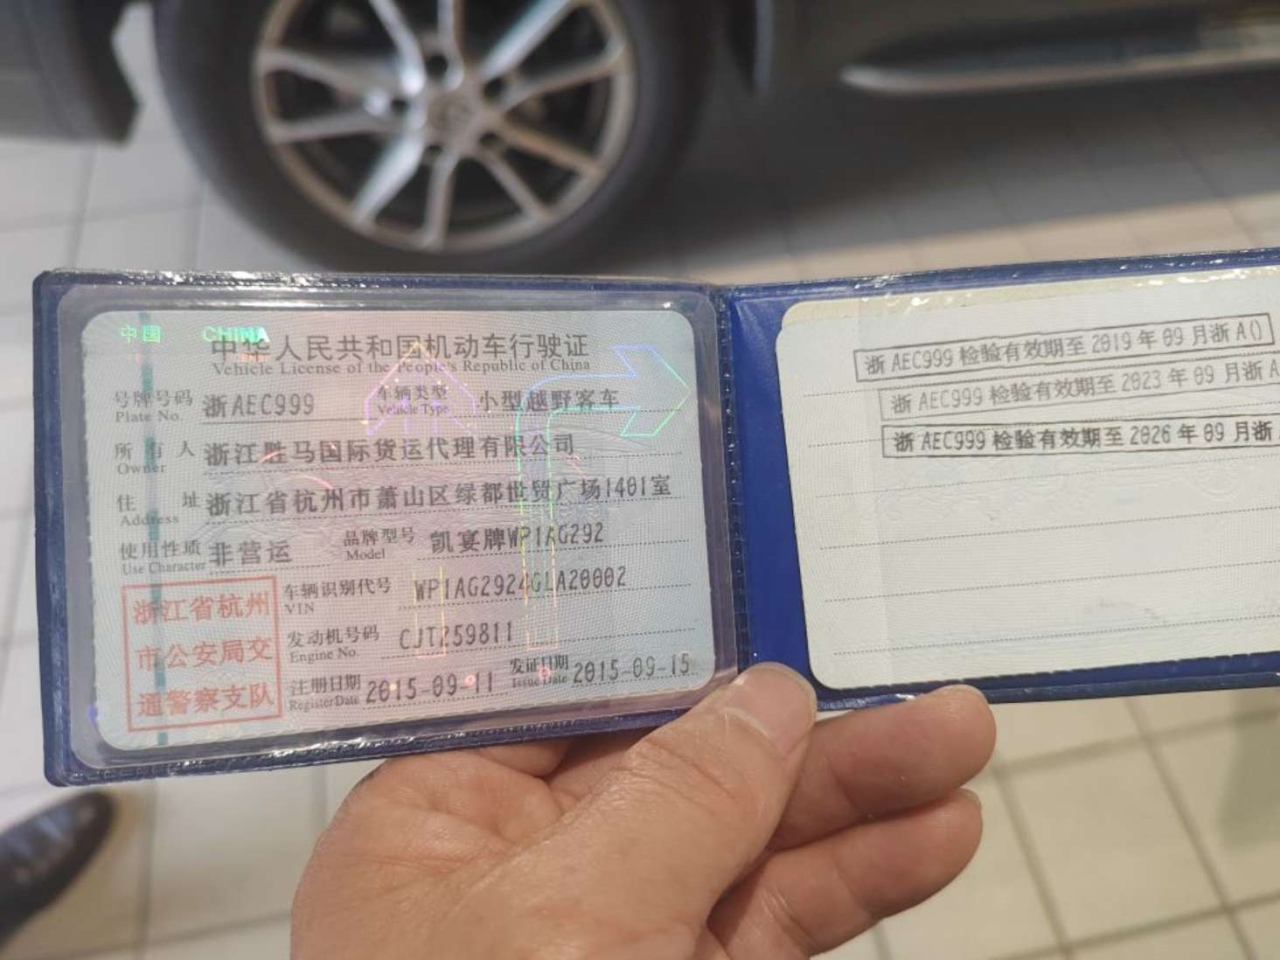 中国 CHINA
中华人民共和国机动车行驶证
Vehicle License of the People's Republic of China
号牌号码 浙AEC999 车辆类型 小型越野客车
Plate No. Vehicle Type
所有人 浙江胜马国际货运代理有限公司
Owner
住址 浙江省杭州市萧山区绿都世贸广场1401室
Address
使用性质 非营运 品牌型号 凯宴牌WP1AG292
Use Character Model
浙江省杭州
市公安局交
通警察支队
车辆识别代号 WP1AG2924GLA20002
VIN
发动机号码 CJT259811
Engine No.
注册日期 2015-09-11 发证日期 2015-09-15
Register Date Issue Date
浙AEC999检验有效期至2019年09月浙A()
浙AEC999检验有效期至2023年09月浙A
浙AEC999检验有效期至2026年09月浙